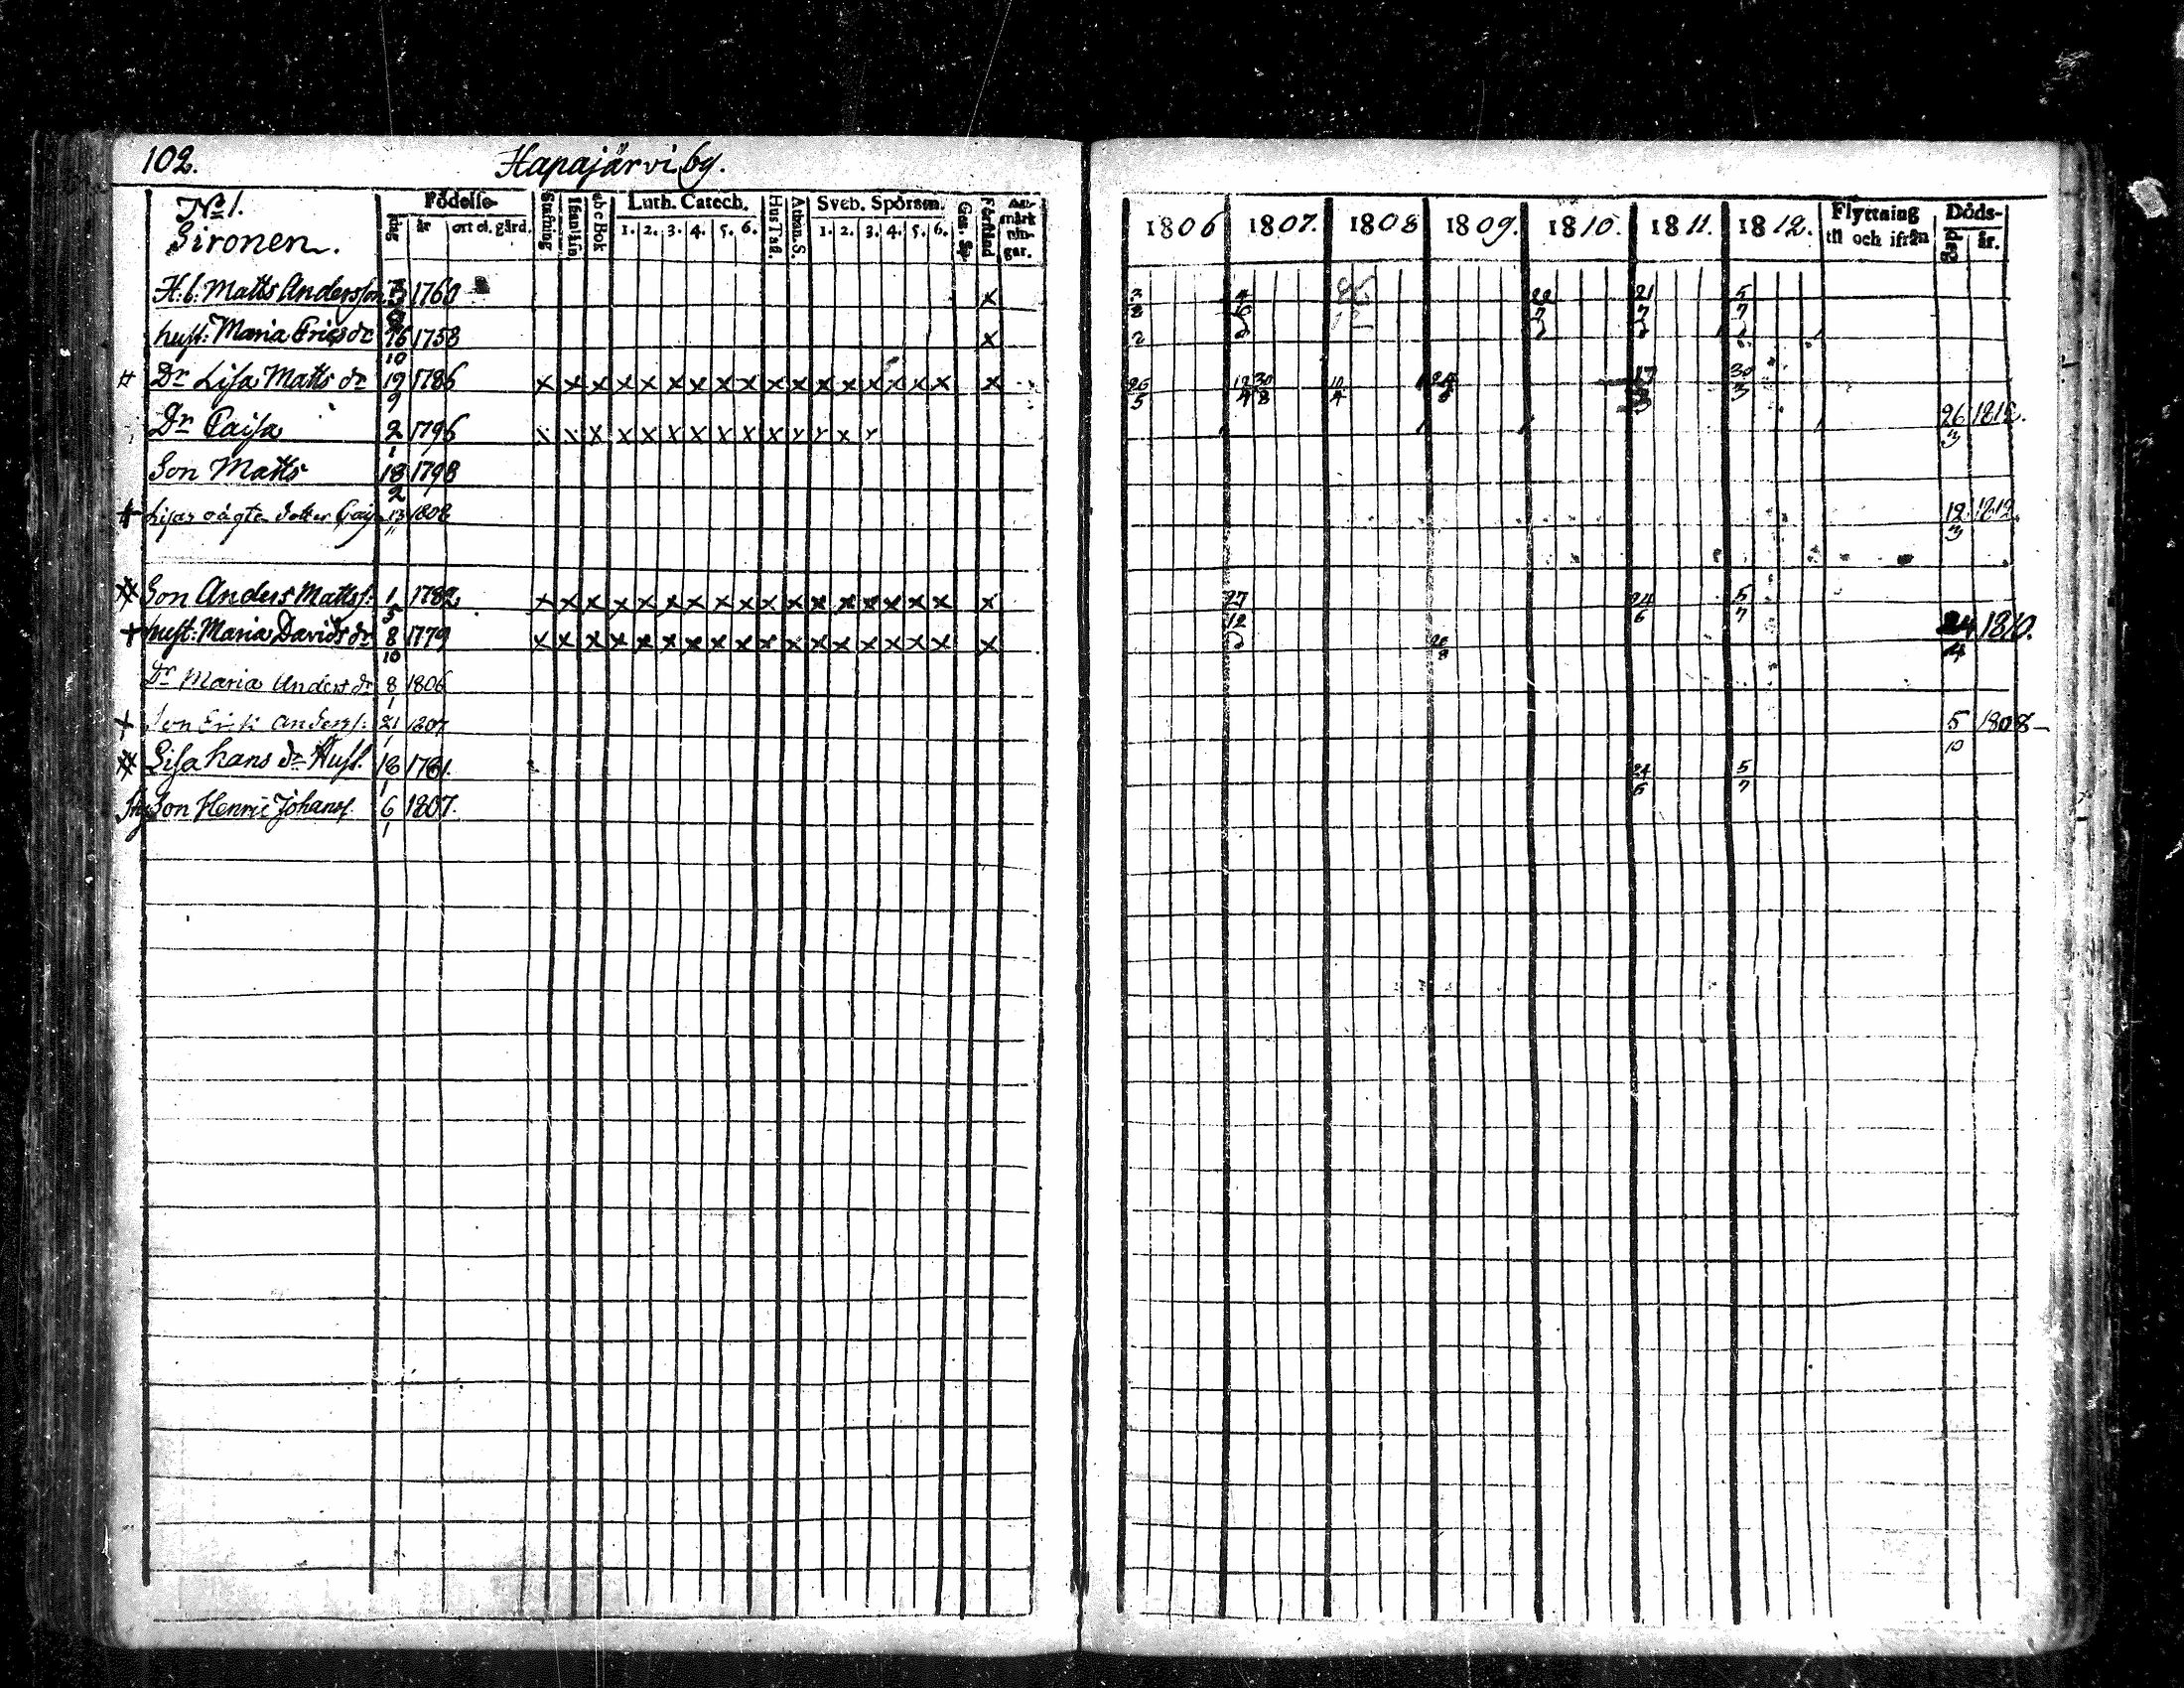 102. Hapajärvi by.
No 1. Födelse- Stafning Luth. Catech. Hus Tafl. Athan. S. Sveb. Spörsm. Förstånd
Sironen. dag år ort el. gård. abc Bok 1. 2. 3. 4. 5. 6. 1. 2. 3. 4. 5. 6.
1806 1807. 1808 1809. 1810. 1811. 1812. Flyttning till och ifrån Döds- dag år.
H.b. Matts Andersson 1760 x 22/7 21/7 5/7
hust: Maria Ericsdr 26/10 1758 x
# Dr Lisa Matts dr 19/9 1786 x x x x x x x x x x x x x x x x x x 26/5 12/4 30/8 10/4 30/3
Dr Caisa 2/1 1796 x x x x x x x x x x x x x x 26/3 1812.
Son Matts 18/2 1798
# Lisas oägta dotter Caisa 13/11 1808 12/3 1812.
# Son Anders Mattss: 1/5 1782 x x x x x x x x x x x x x x x x x x 27/12 24/6 5/7
+ hust: Maria Davids dr 8/10 1779 x x x x x x x x x x x x x x x x x x 24/4 1810.
Dr Maria Anders dr 8/1 1806
+ Son Erik Anderss: 21/1 1807 5/10 1808
# Lisa Hans dr Hust. 18/1 1781. 24/6 5/7
Son Henric Johanss. 6/1 1807.